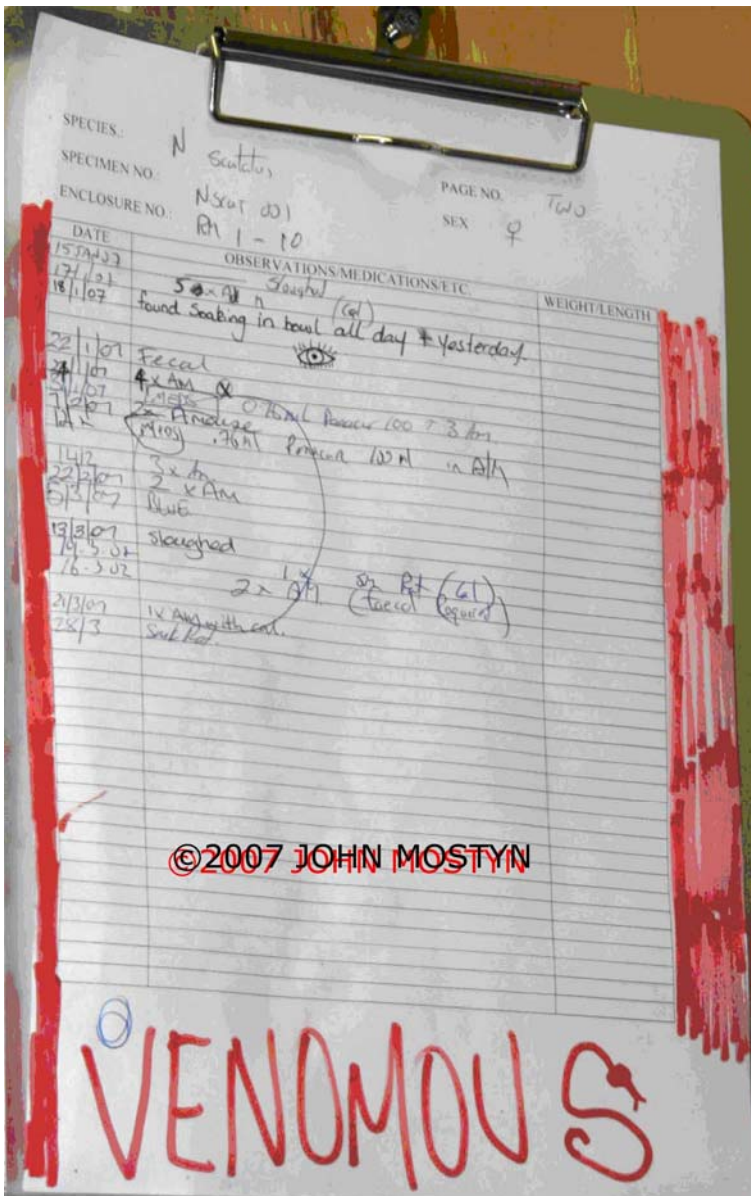 SPECIES.: N Scutatus
SPECIMEN NO. NScuT 001
ENCLOSURE NO.: RM 1 - 10
PAGE NO. TWO
SEX ♀
DATE OBSERVATIONS/MEDICATIONS/ETC. WEIGHT/LENGTH
Sloughed
17/1/07 (Cal)
18/1/07 found Soaking in bowl all day + Yesterday.
22/1/07 Fecal
4 x AM
(MEDS) 0.76ml Panacur 100 + 3 Am
7/2/07 2x Amouse
(MEDS) .76ml Panacur 100 in A/M
14/2 3 x Am
22/2/07 2 x AM
5/3/07 BLUE
13/3/07 Sloughed
19.3.07 1 x Rat (Cal)
16.3.07 2 x AM. (faecal required)
21/3/07 1x with cal.
28/3 Rat.
©2007 JOHN MOSTYN
VENOMOUS